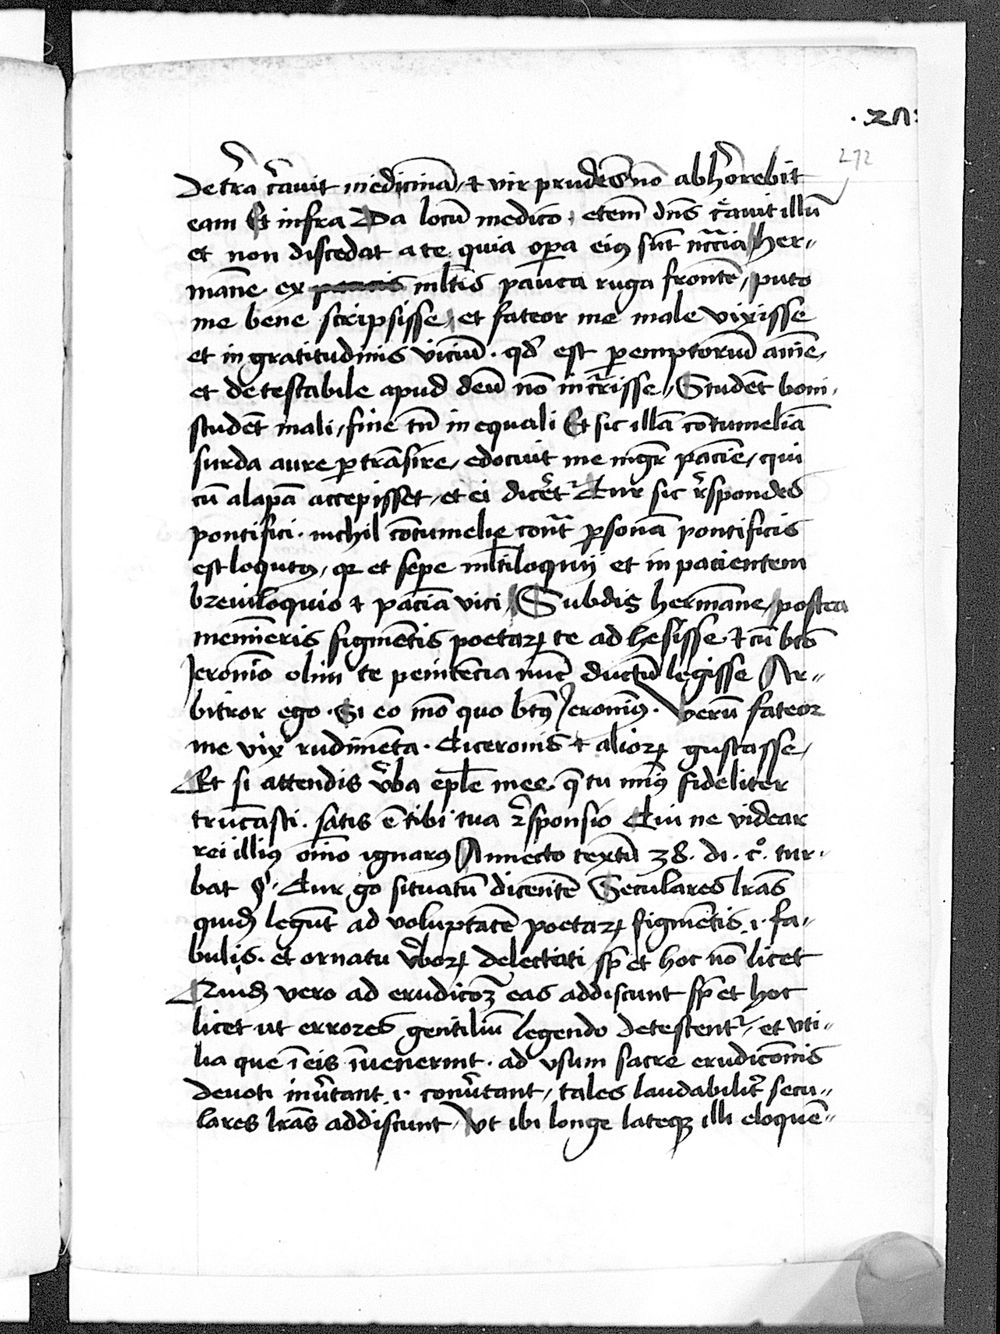 de tr̄a c̄auit medicinā, & vir prudēs nō abhorrebit
eam Et infra Da locū medico, etem̄ dn̄s c̄auit illū
et non discedat a te, quia oꝑa eiꝰ sūt nc̄c̄ia Her-
māne ex ml̄tis pauca ruga frontē, puto
me bene scripsisse, et fateor me male vixisse
et ingratitudinis viciū. qd̄ est ꝑemptoriū aīe,
et detestabile apud deū nō inc̄risse, Studēt boni,
studēt mali, fine tn̄ inequali Et sic illā cōtumeliā
surda aure ꝑtrāsire, edocuit me mgr̄ paciē, qui
cū alapā accepisset, et ei dicēt᷑ Cur sic r̄spondes
pontifici. nichil cōtumelie cont᷑ ꝑsonā pontificis
est loqutꝰ, qꝛ et sepe ml̄tiloquiū et inpacientem
breuiloquio & paciā vici, Subdis hermāne, postea
memīeris figmētis poetaꝝ te adhesisse & cū bt̄o
Jeronīo olim te penitēcia nūc ductū legisse Ar-
bitror ego. Si eo mō quo bt̄ꝰ Jeronīꝰ. Verū fateor
me vix rudimēta. Ciceronis & alioꝝ gustasse,
Et si attendis v̄ba epl̄e mee. q̄ tu minꝰ fideliter
trūcasti. satis ē tibi tua r̄sponsio Cui ne videar
rei illiꝰ oīno ignarꝰ Annecto textū 38. di. c°. tur-
bat §. Cur gͦ situatū dicentē Seculares lr̄as
quidā legūt ad voluptatē poetaꝝ figmētis .i. fa-
bulis. et ornatu v̄boꝝ delectati sꝫ et hoc nō licet
Quidā vero ad erudicōꝫ eas addiscunt sꝫ et hoc
licet ut errores gentiliū legendo detestent᷑, et vti-
lia que ī eis īuenerint. ad vsum sacre erudicōnis
deuoti inv̄tant .i. conv̄tant, tales laudabilit᷑ secu-
lares lr̄as addiscunt, Ut ibi longe lateqꝫ illi eloquē-